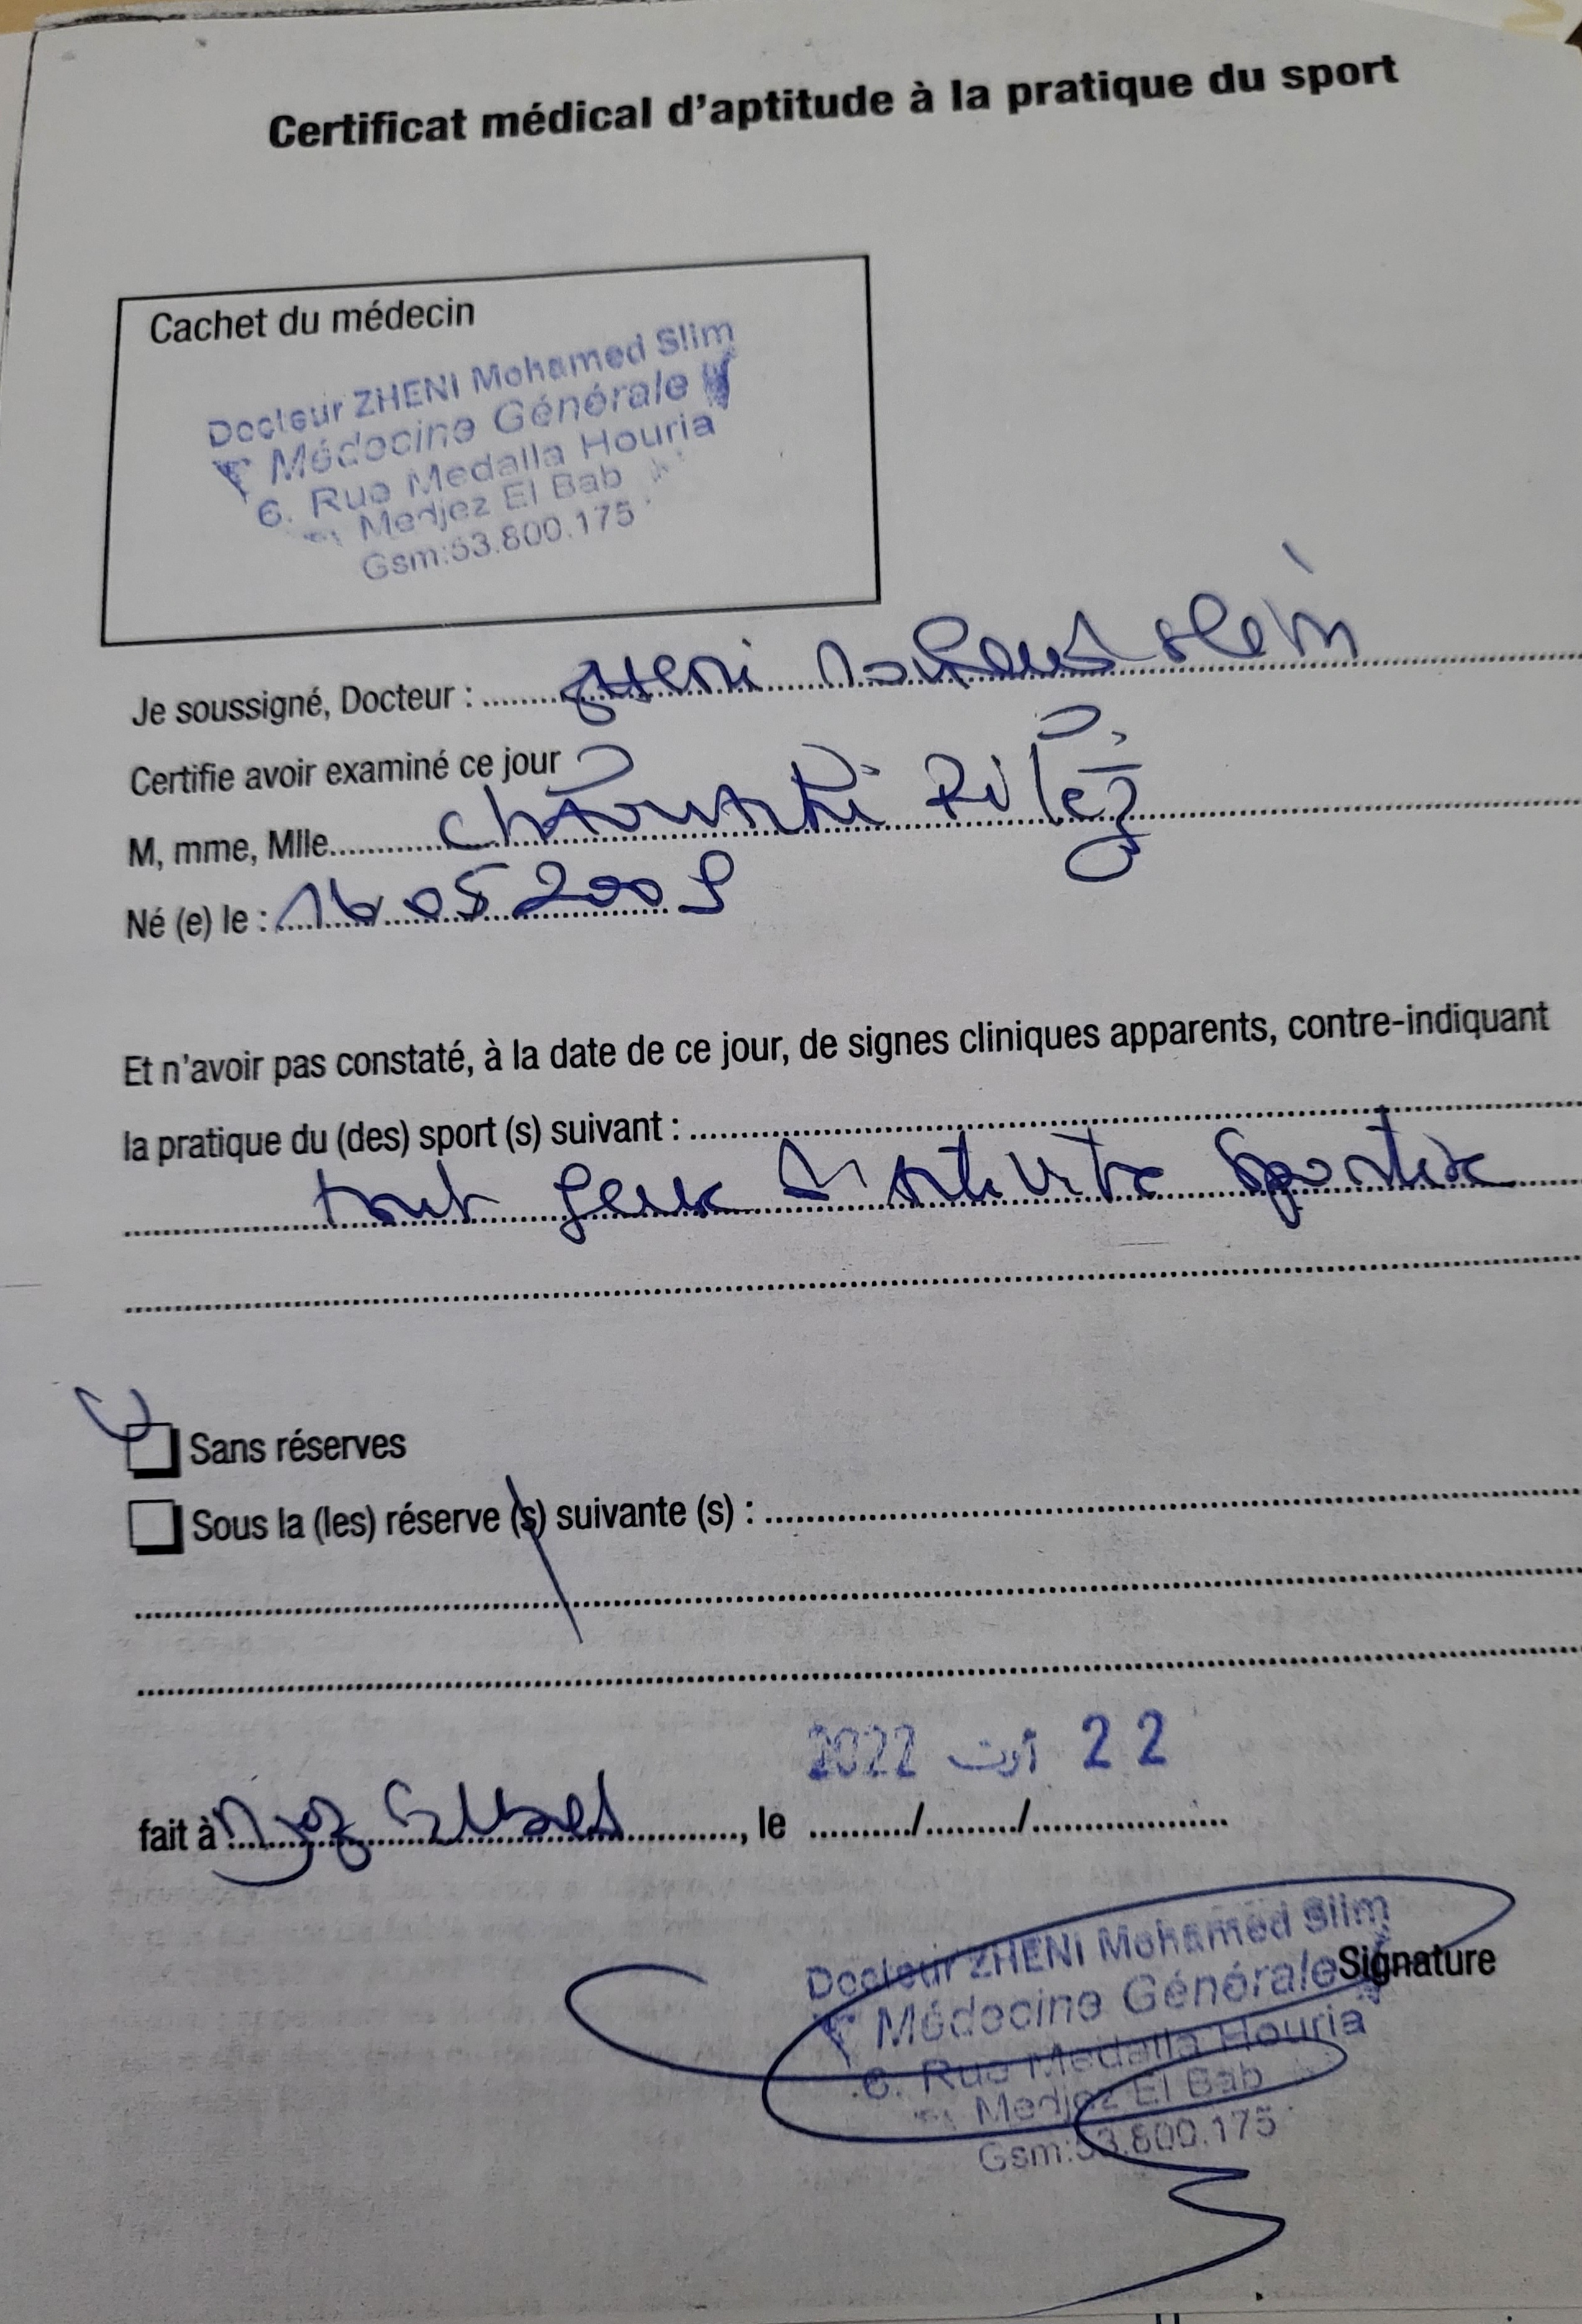 Certificat médical d'aptitude à la pratique du sport
Cachet du médecin
Docteur ZHENI Mohamed Slim
Médecine Générale
6. Rue Medalla Houria
Medjez El Bab
Gsm:53.800.175
Je soussigné, Docteur : Zheni Mohamed Slim
Certifie avoir examiné ce jour
M, mme, Mlle
Né (e) le : 16 05 2009
Et n'avoir pas constaté, à la date de ce jour, de signes cliniques apparents, contre-indiquant
la pratique du (des) sport (s) suivant :
tout genre d'activité sportive
Sans réserves
Sous la (les) réserve (s) suivante (s) :
22 أوت 2022
fait à , le / /
Docteur ZHENI Mohamed Slim
Signature
Médecine Générale
6. Rue Medalla Houria
Medjez El Bab
Gsm:53.800.175